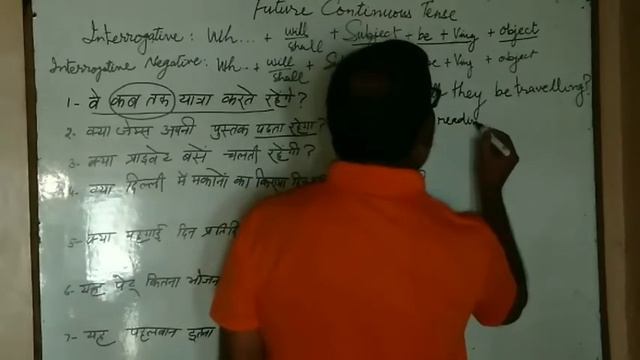 Future Continuous Tense
Interrogative: Wh... + will/shall + Subject + be + Ving + object
Interrogative Negative: Wh.. + will/shall + be + Ving + object
1- वे कब तक यात्रा करते रहेंगे? they be travelling?
2- क्या जेम्स अपनी पुस्तक पढता रहेगा? readin
3- क्या प्राइवेट बसें चलती रहेंगी?
4- क्या दिल्ली में मकानों का किराया
5- क्या महगाई दिन
6- यह पेटू कितना भोजन
7- यह पहलवान इतना